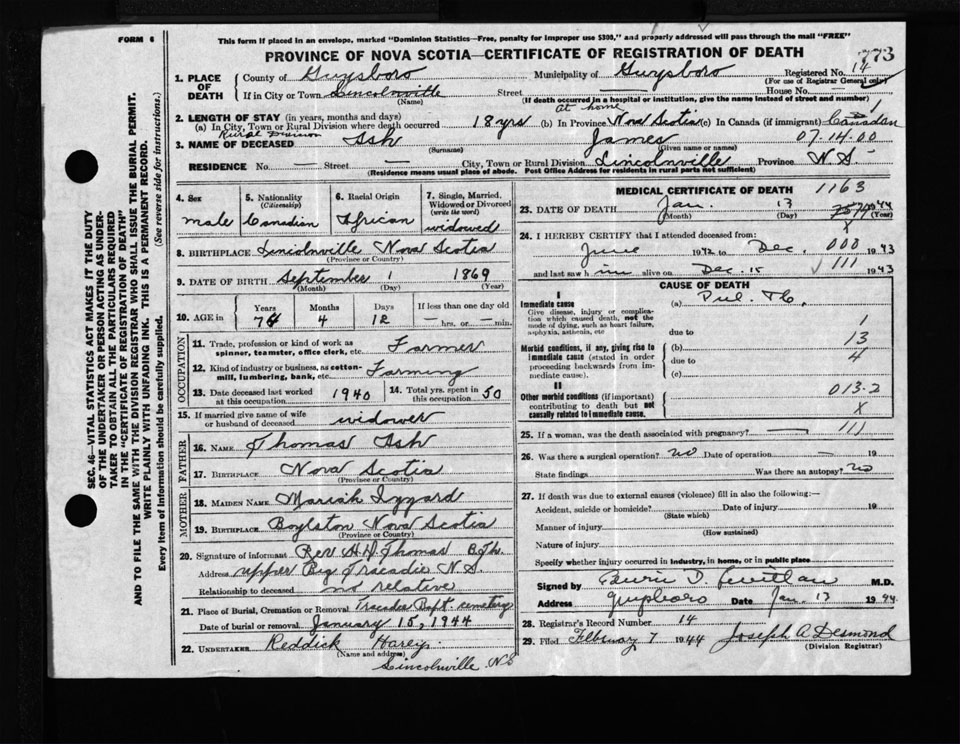 FORM 6
This form if placed in an envelope, marked "Dominion Statistics—Free, penalty for improper use $300," and properly addressed will pass through the mail "FREE"
PROVINCE OF NOVA SCOTIA—CERTIFICATE OF REGISTRATION OF DEATH
773
1. PLACE OF DEATH
County of Guysboro Municipality of Guysboro Registered No. 14
(For use of Registrar General only)
If in City or Town Lincolnville Street — House No. —
(Name) (If death occurred in a hospital or institution, give the name instead of street and number)
at home
2. LENGTH OF STAY (in years, months and days)
(a) In City, Town or Rural Division where death occurred 18 yrs (b) In Province Nova Scotia (c) In Canada (if immigrant) Canadian
Rural Division
1
07.14.00
3. NAME OF DECEASED Ash James
(Surname) (Given name or names)
RESIDENCE No. — Street — City, Town or Rural Division Lincolnville Province N.S.
(Residence means usual place of abode. Post Office Address for residents in rural parts not sufficient)
4. Sex male
5. Nationality (Citizenship) Canadian
6. Racial Origin African
7. Single, Married, Widowed or Divorced (write the word) widowed
8. BIRTHPLACE Lincolnville Nova Scotia
(Province or Country)
9. DATE OF BIRTH September 1 1869
(Month) (Day) (Year)
10. AGE in Years Months 4 Days 12 If less than one day old — hrs. or — min.
OCCUPATION
11. Trade, profession or kind of work as spinner, teamster, office clerk, etc. Farmer
12. Kind of industry or business, as cotton-mill, lumbering, bank, etc. Farming
13. Date deceased last worked at this occupation 1940
14. Total yrs. spent in this occupation 50
15. If married give name of wife or husband of deceased widower
FATHER
16. NAME Thomas Ash
17. BIRTHPLACE Nova Scotia
(Province or Country)
MOTHER
18. MAIDEN NAME Mariah Izzard
19. BIRTHPLACE Boylston Nova Scotia
(Province or Country)
20. Signature of informant Rev A. D. Thomas B.Th.
Address upper Big Tracadie N.S.
Relationship to deceased no relative
21. Place of Burial, Cremation or Removal Tracadie Bapt. cemetery
Date of burial or removal January 15, 1944
22. UNDERTAKER Reddick Harey
(Name and address)
Lincolnville N.S
MEDICAL CERTIFICATE OF DEATH 1163
23. DATE OF DEATH Jan. 13 1944
(Month) (Day) (Year)
X
24. I HEREBY CERTIFY that I attended deceased from:
June 1942 to Dec. 000 1943
and last saw him alive on Dec. 15 111 1943
CAUSE OF DEATH
I
Immediate cause
Give disease, injury or complication which caused death, not the mode of dying, such as heart failure, asphyxia, asthenia, etc
(a) Pul. Tb.
due to
1
13
4
Morbid conditions, if any, giving rise to immediate cause (stated in order proceeding backwards from immediate cause).
(b)
due to
(c)
II
Other morbid conditions (if important) contributing to death but not causally related to immediate cause.
013-2
X
111
25. If a woman, was the death associated with pregnancy? —
26. Was there a surgical operation? no Date of operation — 19
State findings Was there an autopsy? no
27. If death was due to external causes (violence) fill in also the following:—
Accident, suicide or homicide? Date of injury 19
(State which)
Manner of injury
(How sustained)
Nature of injury
Specify whether injury occurred in industry, in home, or in public place
Signed by M.D.
Address Guysboro Date Jan. 13 1944.
28. Registrar's Record Number 14
29. Filed February 7 1944 Joseph A Desmond
(Division Registrar)
SEC. 46—VITAL STATISTICS ACT MAKES IT THE DUTY
OF THE UNDERTAKER OR PERSON ACTING AS UNDER-
TAKER TO OBTAIN ALL THE PARTICULARS REQUIRED
IN THE "CERTIFICATE OF REGISTRATION OF DEATH"
AND TO FILE THE SAME WITH THE DIVISION REGISTRAR WHO SHALL ISSUE THE BURIAL PERMIT.
WRITE PLAINLY WITH UNFADING INK. THIS IS A PERMANENT RECORD.
Every item of information should be carefully supplied. (See reverse side for instructions.)